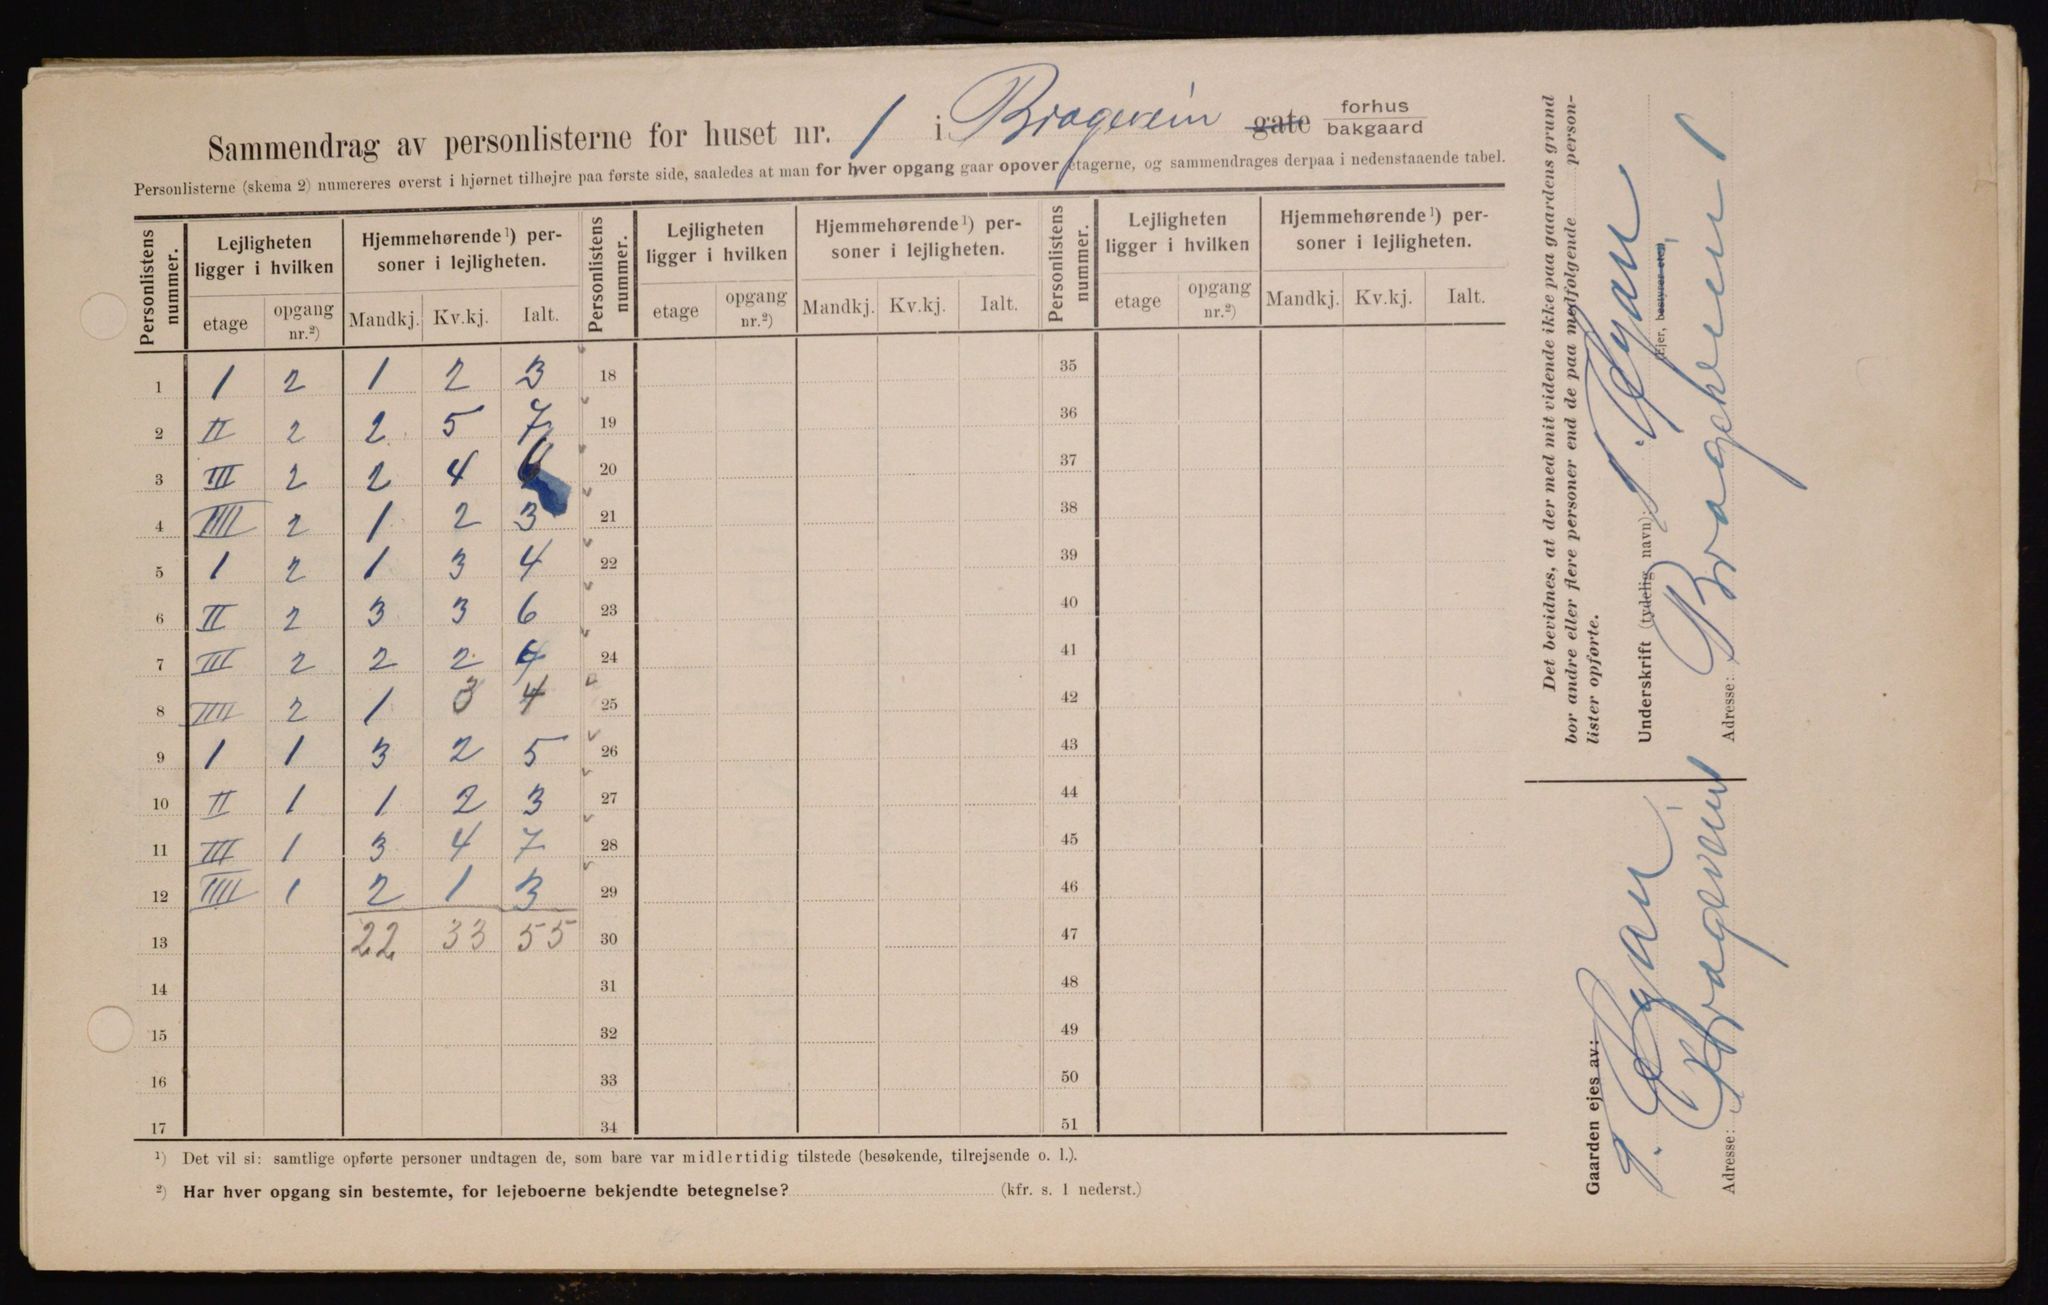 Sammendrag av personlisterne for huset nr. 1 i Bragevein gate forhus bakgaard
Personlisterne (skema 2) numereres øverst i hjørnet tilhøjre paa første side, saaledes at man for hver opgang gaar opover etagerne, og sammendrages derpaa i nedenstaaende tabel.
Personlistens nummer. Lejligheten ligger i hvilken Hjemmehørende¹) personer i lejligheten. Personlistens nummer. Lejligheten ligger i hvilken Hjemmehørende¹) personer i lejligheten. Personlistens nummer. Lejligheten ligger i hvilken Hjemmehørende¹) personer i lejligheten.
etage opgang nr.²) Mandkj. Kv.kj. Ialt. etage opgang nr.²) Mandkj. Kv.kj. Ialt. etage opgang nr.²) Mandkj. Kv.kj. Ialt.
1 1 2 1 2 3 18 35
2 II 2 2 5 7 19 36
3 III 2 2 4 6 20 37
4 IIII 2 1 2 3 21 38
5 1 2 1 3 4 22 39
6 II 2 3 3 6 23 40
7 III 2 2 2 4 24 41
8 IIII 2 1 3 4 25 42
9 1 1 3 2 5 26 43
10 II 1 1 2 3 27 44
11 III 1 3 4 7 28 45
12 IIII 1 2 1 3 29 46
13 22 33 55 30 47
14 31 48
15 32 49
16 33 50
17 34 51
¹) Det vil si: samtlige opførte personer undtagen de, som bare var midlertidig tilstede (besøkende, tilrejsende o. l.).
²) Har hver opgang sin bestemte, for lejeboerne bekjendte betegnelse? (kfr. s. 1 nederst.)
Det bevidnes, at der med mit vidende ikke paa gaardens grund
bor andre eller flere personer end de paa medfølgende person-
lister opførte.
Underskrift (tydelig navn):
(Ejer, bestyrer etc.)
Adresse: Bragevein 1
Gaarden ejes av:
Adresse: Bragevein 1